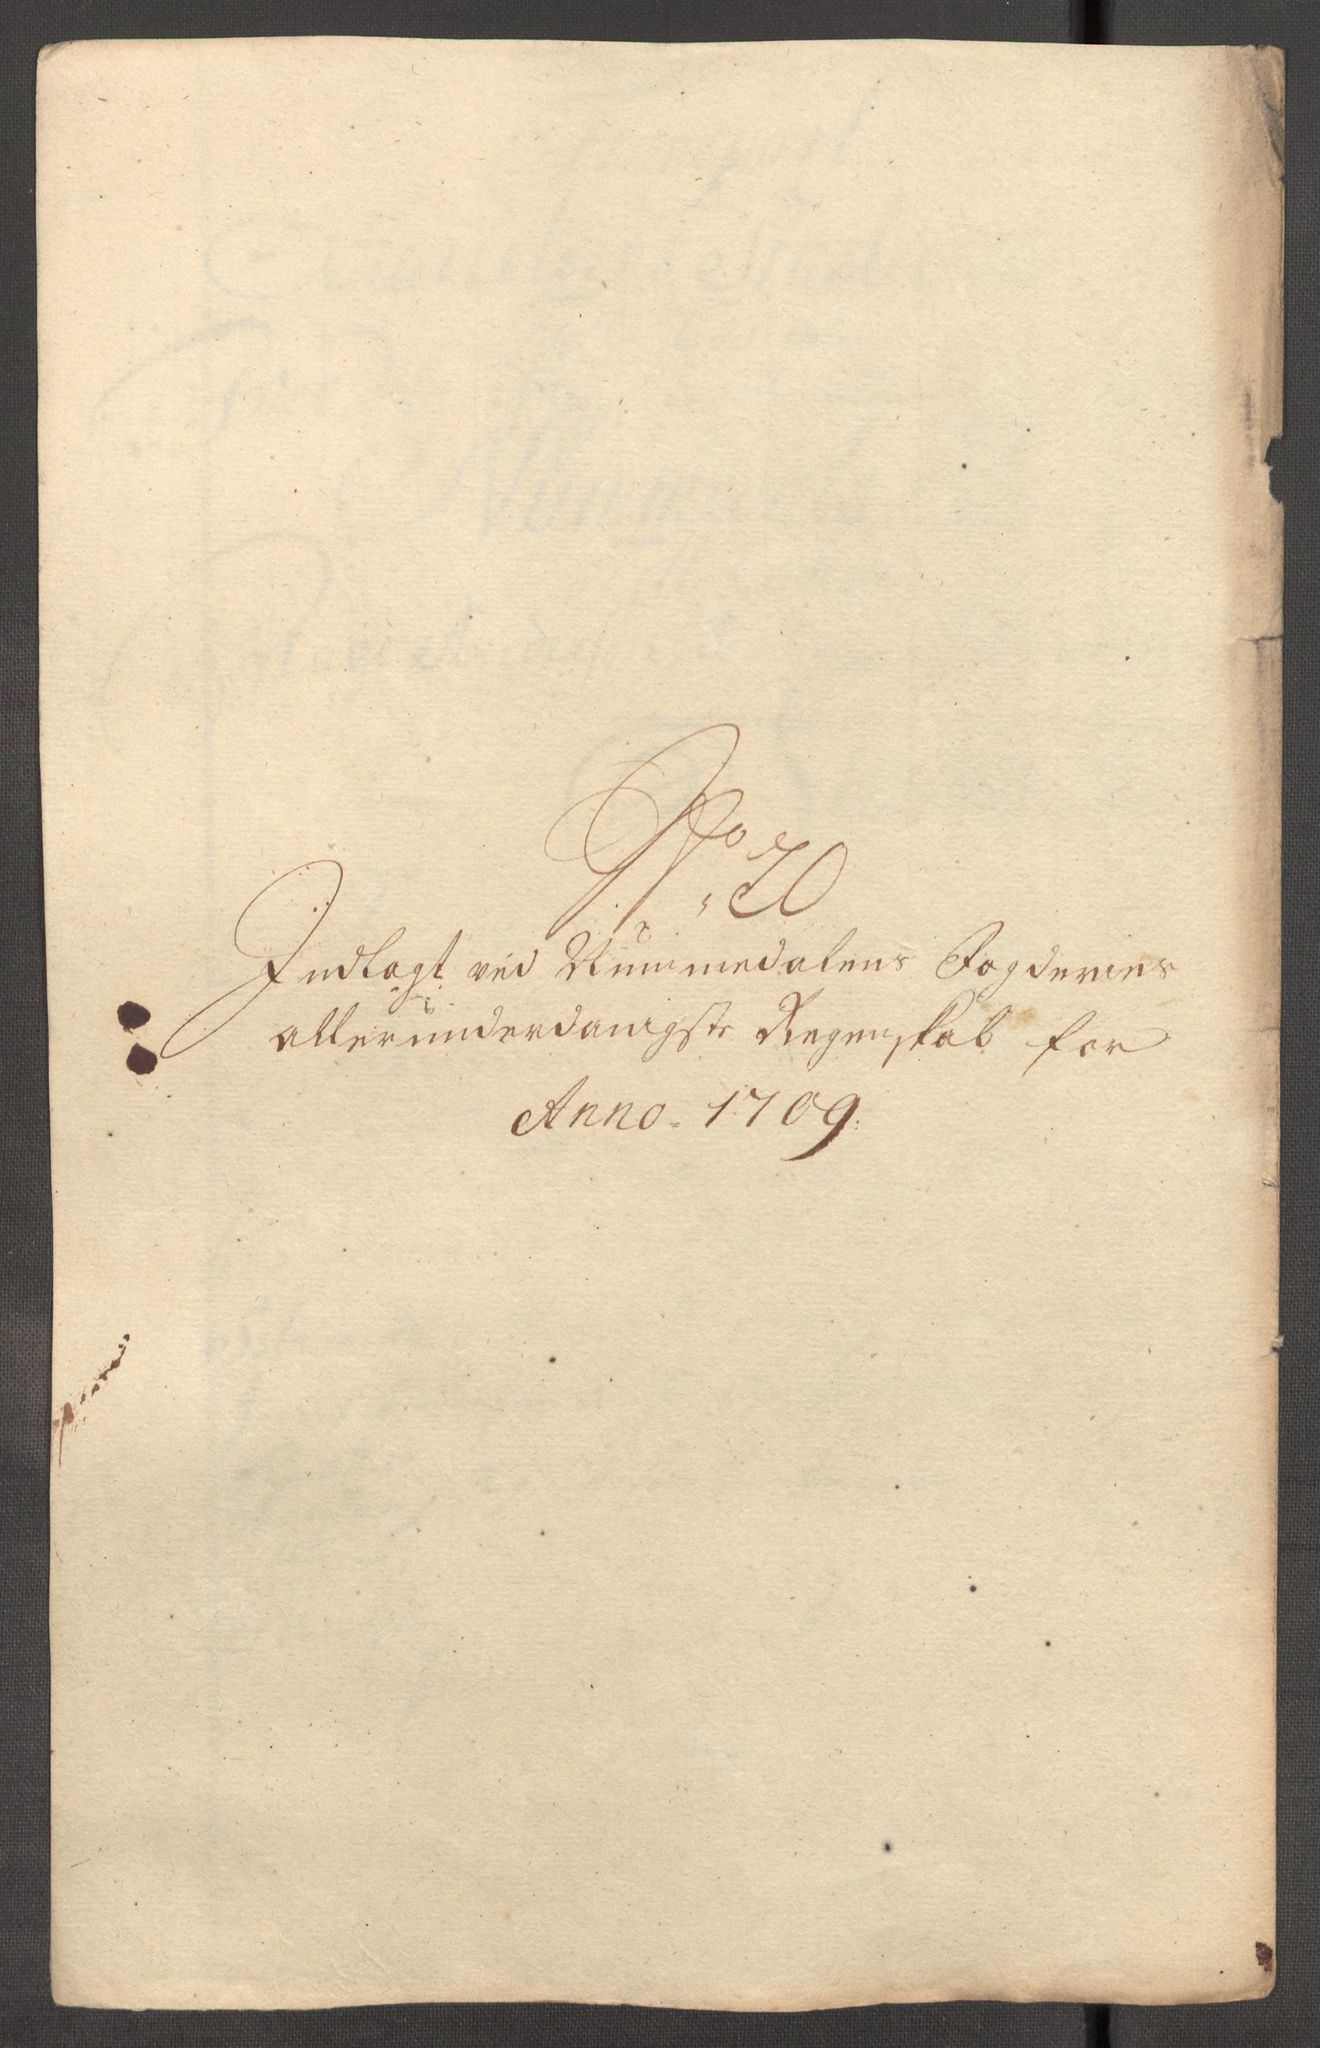 No: 20
Indlagt ved Nummedalens Fogderies
allerunderdanigste Regenskab for
Anno. 1709.